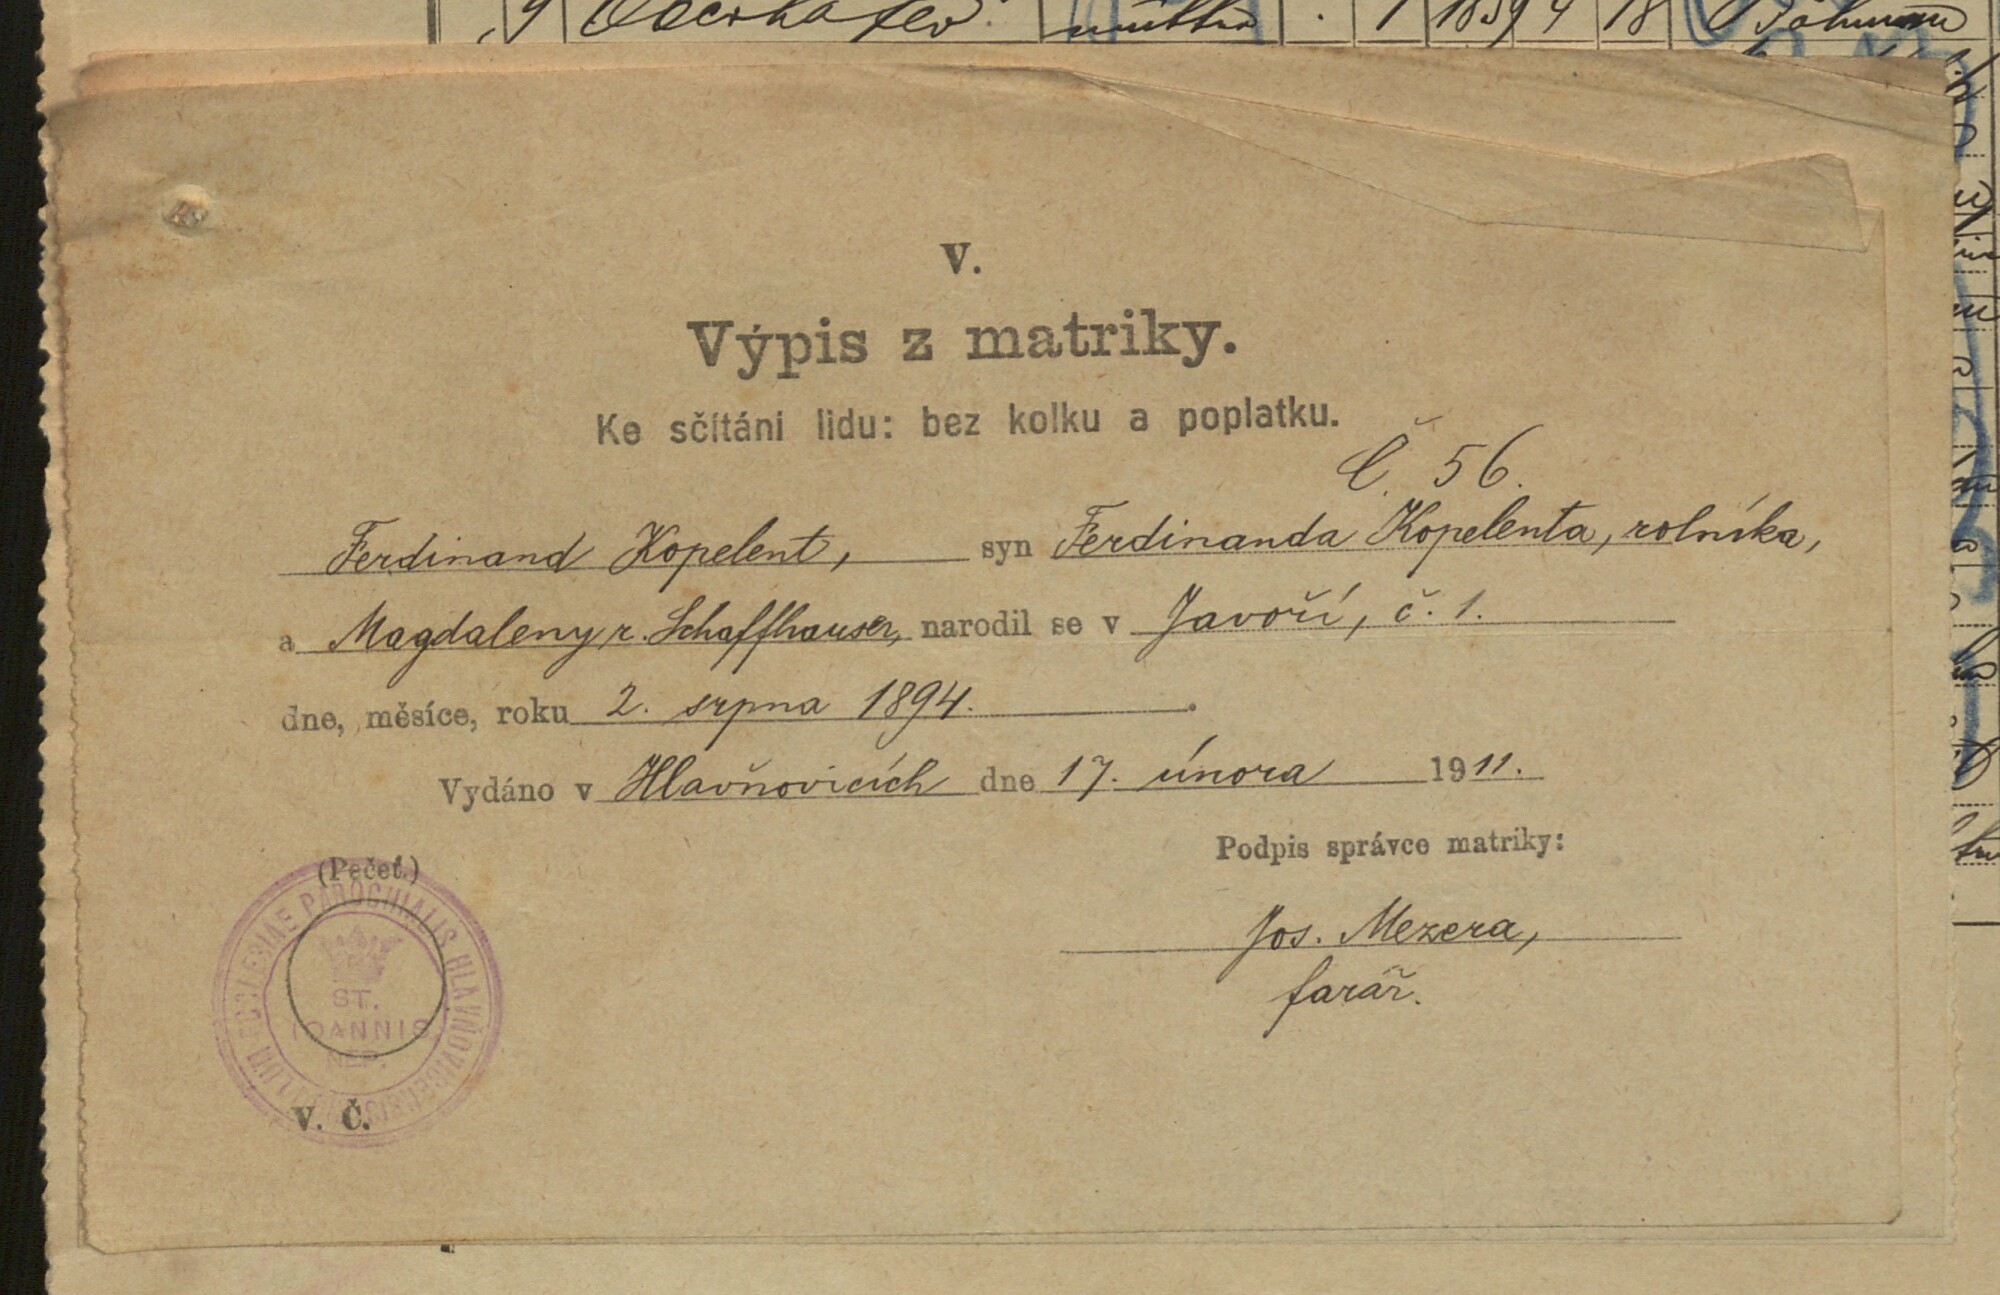 V.
Výpis z matriky.
Ke sčítáni lidu: bez kolku a poplatku.
Č. 56.
Ferdinand Kopelent, syn Ferdinanda Kopelenta, rolníka,
a Magdaleny r. Schaffhauser, narodil se v Javoří, č. 1.
dne, měsíce, roku 2. srpna 1894.
Vydáno v Hlavňovicích dne 17. února 1911.
Podpis správce matriky:
(Pečeť.)
Jos. Mezera,
farář.
ECCLESIAE PAROCHIALIS HLAVŇOVICENSIS
ST.
IOANNIS
NEP.
V. Č.